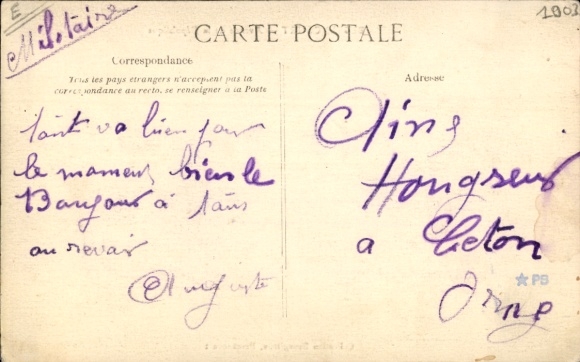 E
Militaire
1903
CARTE POSTALE
Correspondance
Tous les pays étrangers n'acceptent pas la
correspondance au recto, se renseigner à la Poste
Adresse
tout va bien pour
le moment bien le
Bonjour à tous
au revoir
Auguste
Hongreur
a Ceton
Orne
PB